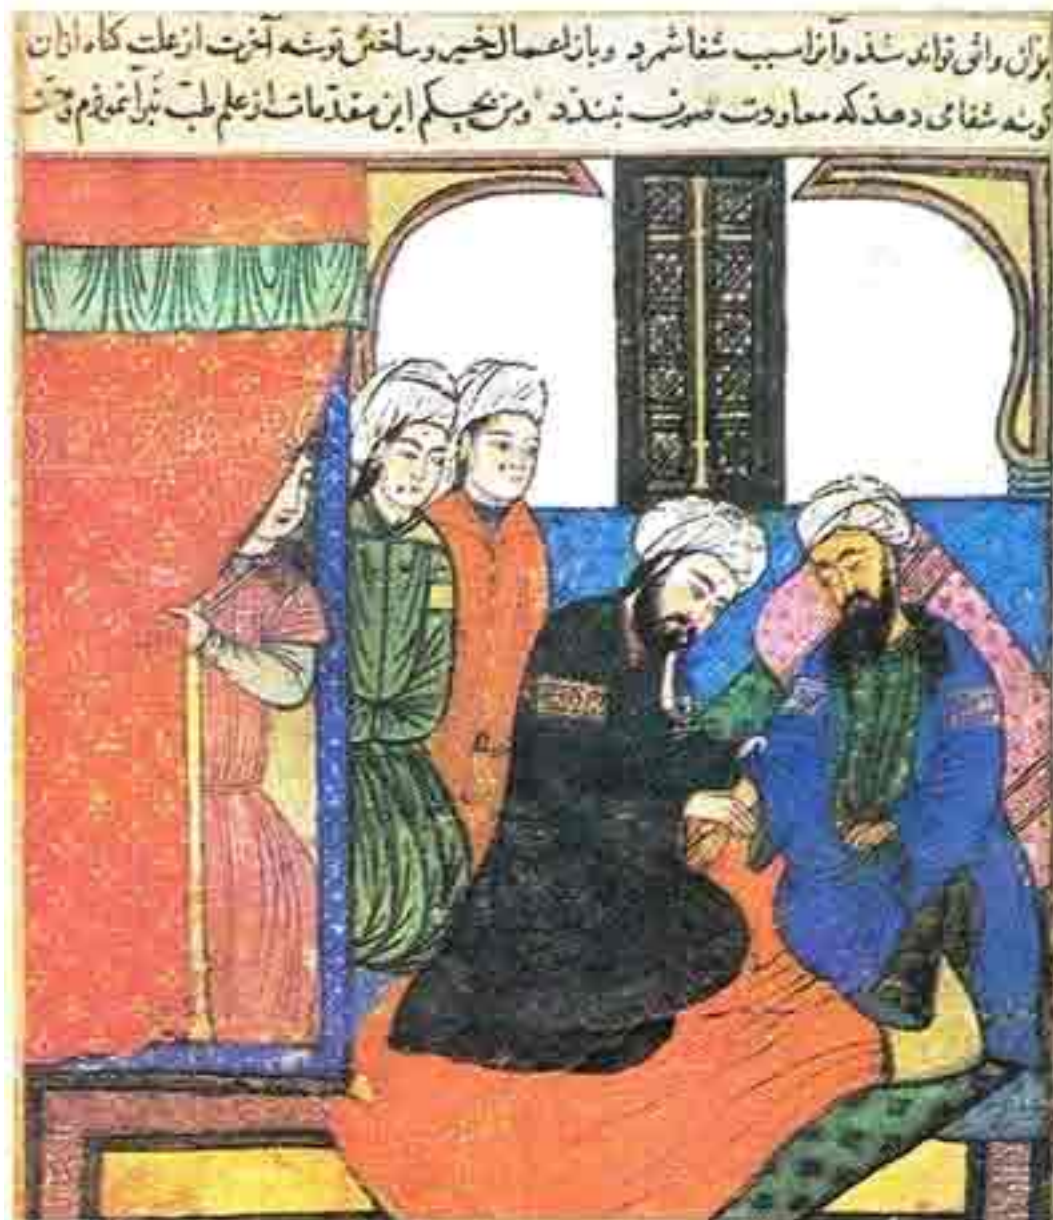 بران واثق تواند شد وآنرا سبب شفا شمرد و باز اعمال خیر و ساختن توشه آخرت از علت کناه ازان
کونه شفا می دهد که معاودت صورت نبندد ومن بحکم این مقدمات از علم طب تبرا نمودم و